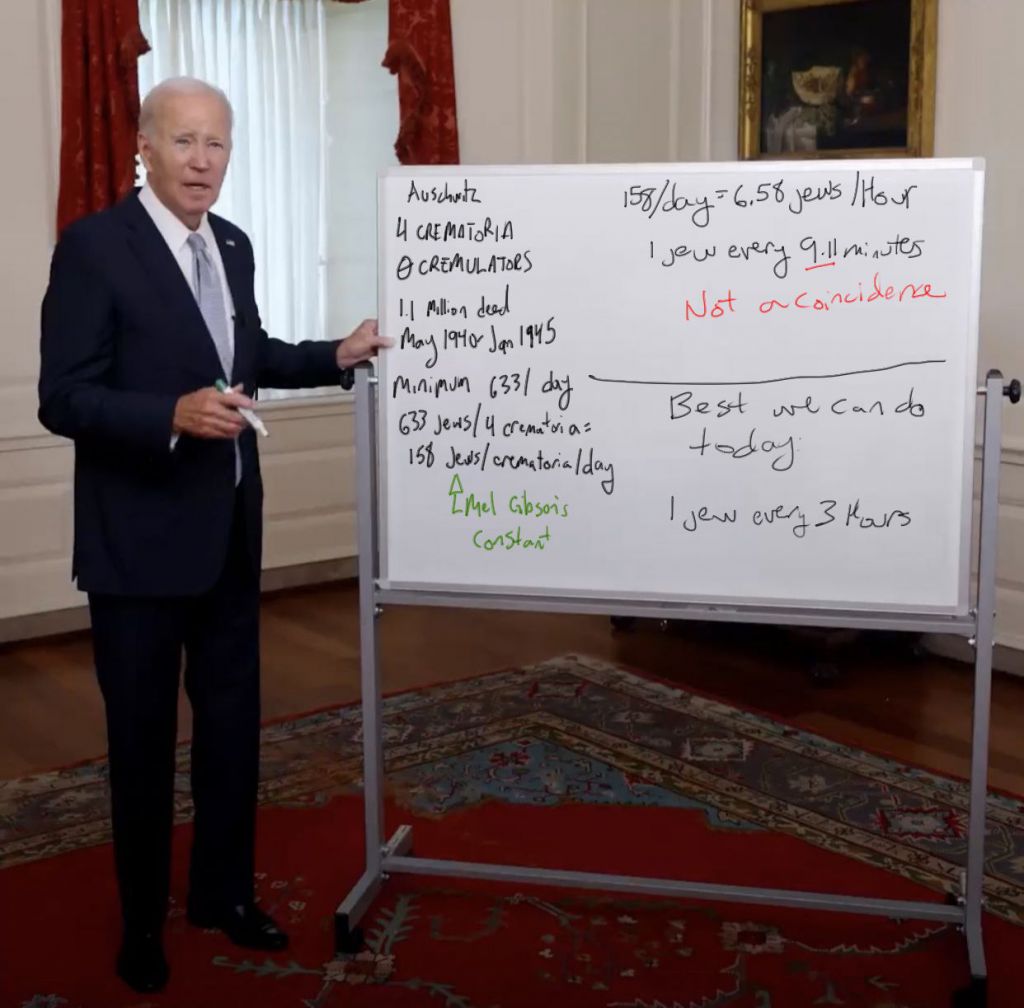 Auschwitz
4 CREMATORIA
0 CREMULATORS
1.1 Million dead
May 1940- Jan 1945
Minimum 633/ day
633 Jews/4 crematoria=
158 Jews/crematoria/day
Mel Gibson's
constant
158/day=6.58 jews/Hour
1 jew every 9.11 minutes
Not a coincidence
Best we can do
today:
1 jew every 3 Hours